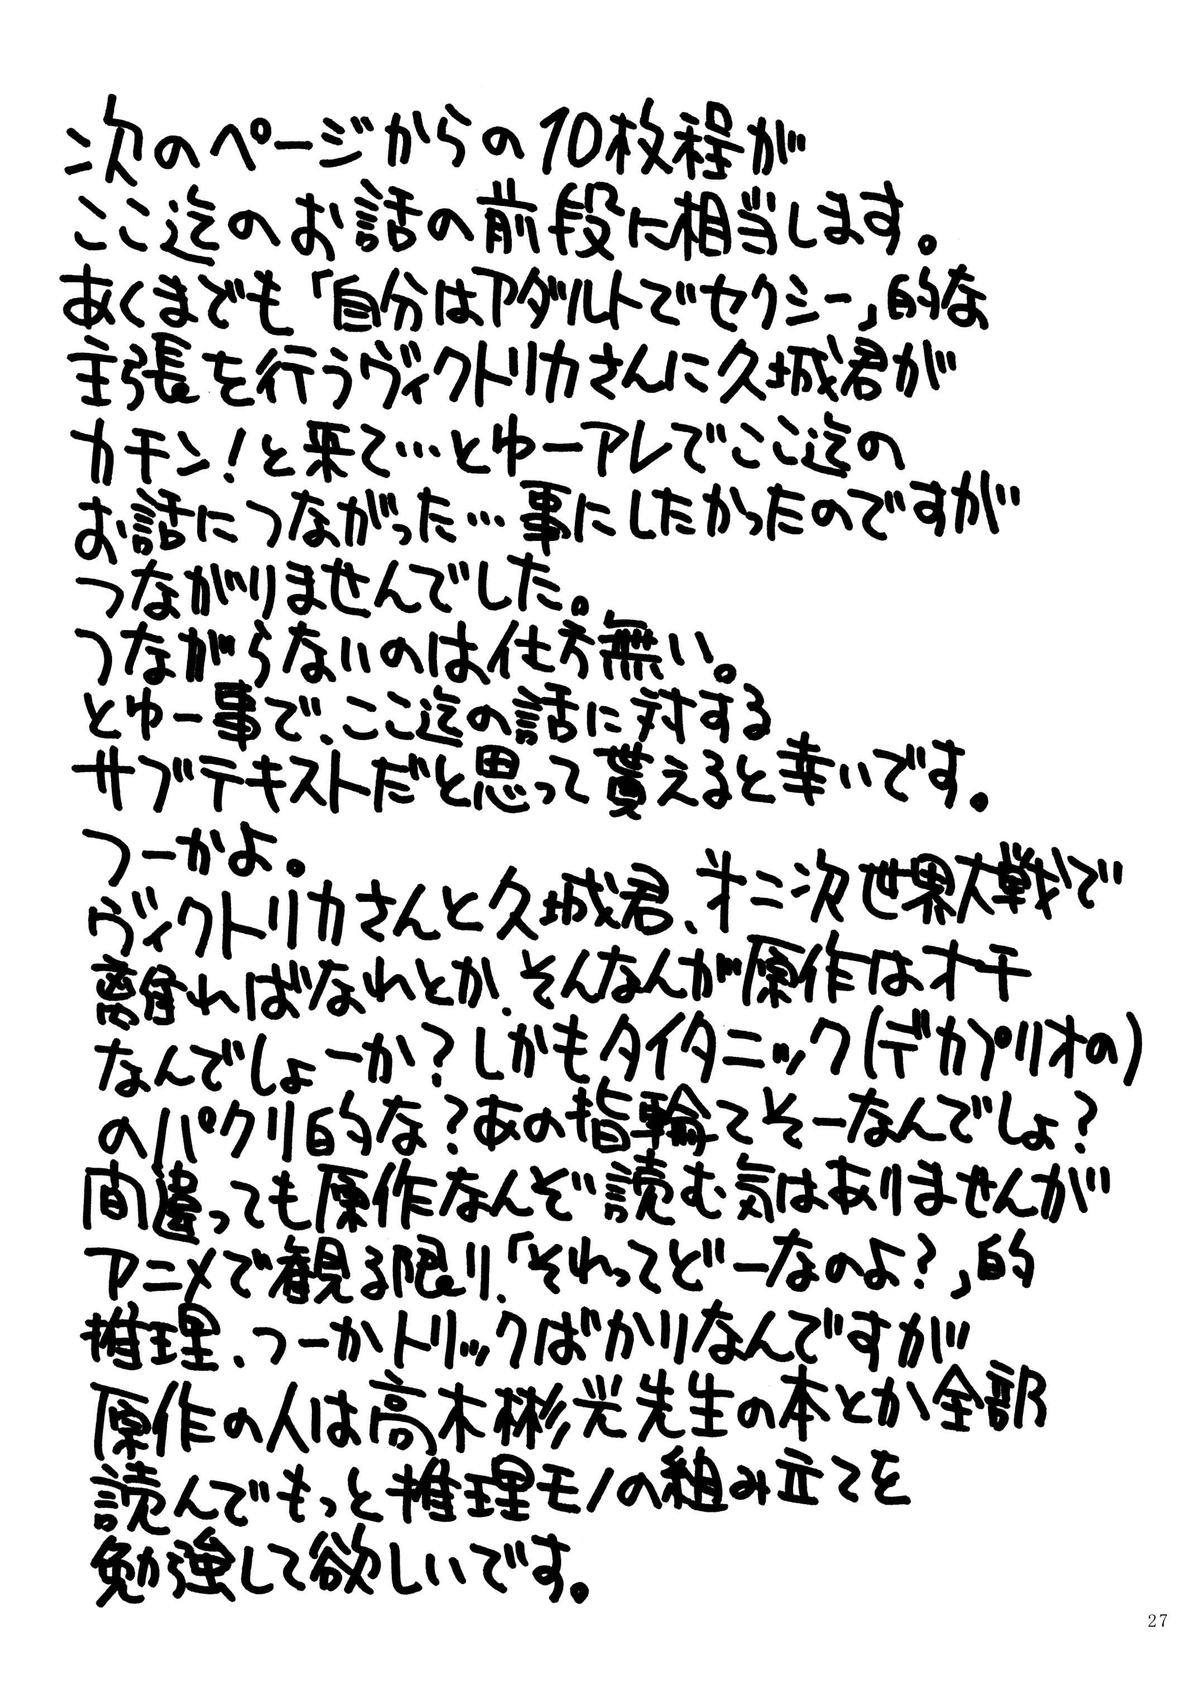 次のページからの10枚程が
ここ迄のお話の前段に相当します。
あくまでも「自分はアダルトでセクシー」的な
主張を行うヴィクトリカさんに久城君が
カチン!と来て…とゆーアレでここ迄の
お話につながった…事にしたかったのですが
つながりませんでした。
つながらないのは仕方無い。
とゆー事で、ここ迄の話に対する
サブテキストだと思って貰えると幸いです。
つーかよ。
ヴィクトリカさんと久城君、才二次世界大戦で
離ればなれとか、そんなんが原作はオチ
なんでしょーか?しかもタイタニック(デカプリオの)
のパクリ的な?あの指輪てそーなんでしょ?
間違っても原作なんぞ読む気はありませんが
アニメで観る限り、「それってどーなのよ?」的
推理、つーかトリックばかりなんですが
原作の人は高木彬光先生の本とか全部
読んでもっと推理モノの組み立てを
勉強して欲しいです。
27